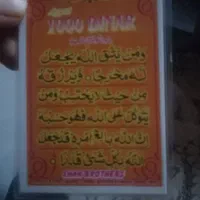 Ayat
1000 DINAR
وَمَنْ يَتَّقِ اللهَ يَجْعَلْ
لَهُ مَخْرَجًا، وَيَرْزُقْهُ
مِنْ حَيْثُ لَا يَحْتَسِبُ وَمَنْ
يَتَوَكَّلْ عَلَى اللهِ فَهُوَ حَسْبُهُ
إِنَّ اللهَ بَالِغُ أَمْرِهِ قَدْ جَعَلَ
اللهُ لِكُلِّ شَيْءٍ قَدْرًا
BROTHERS